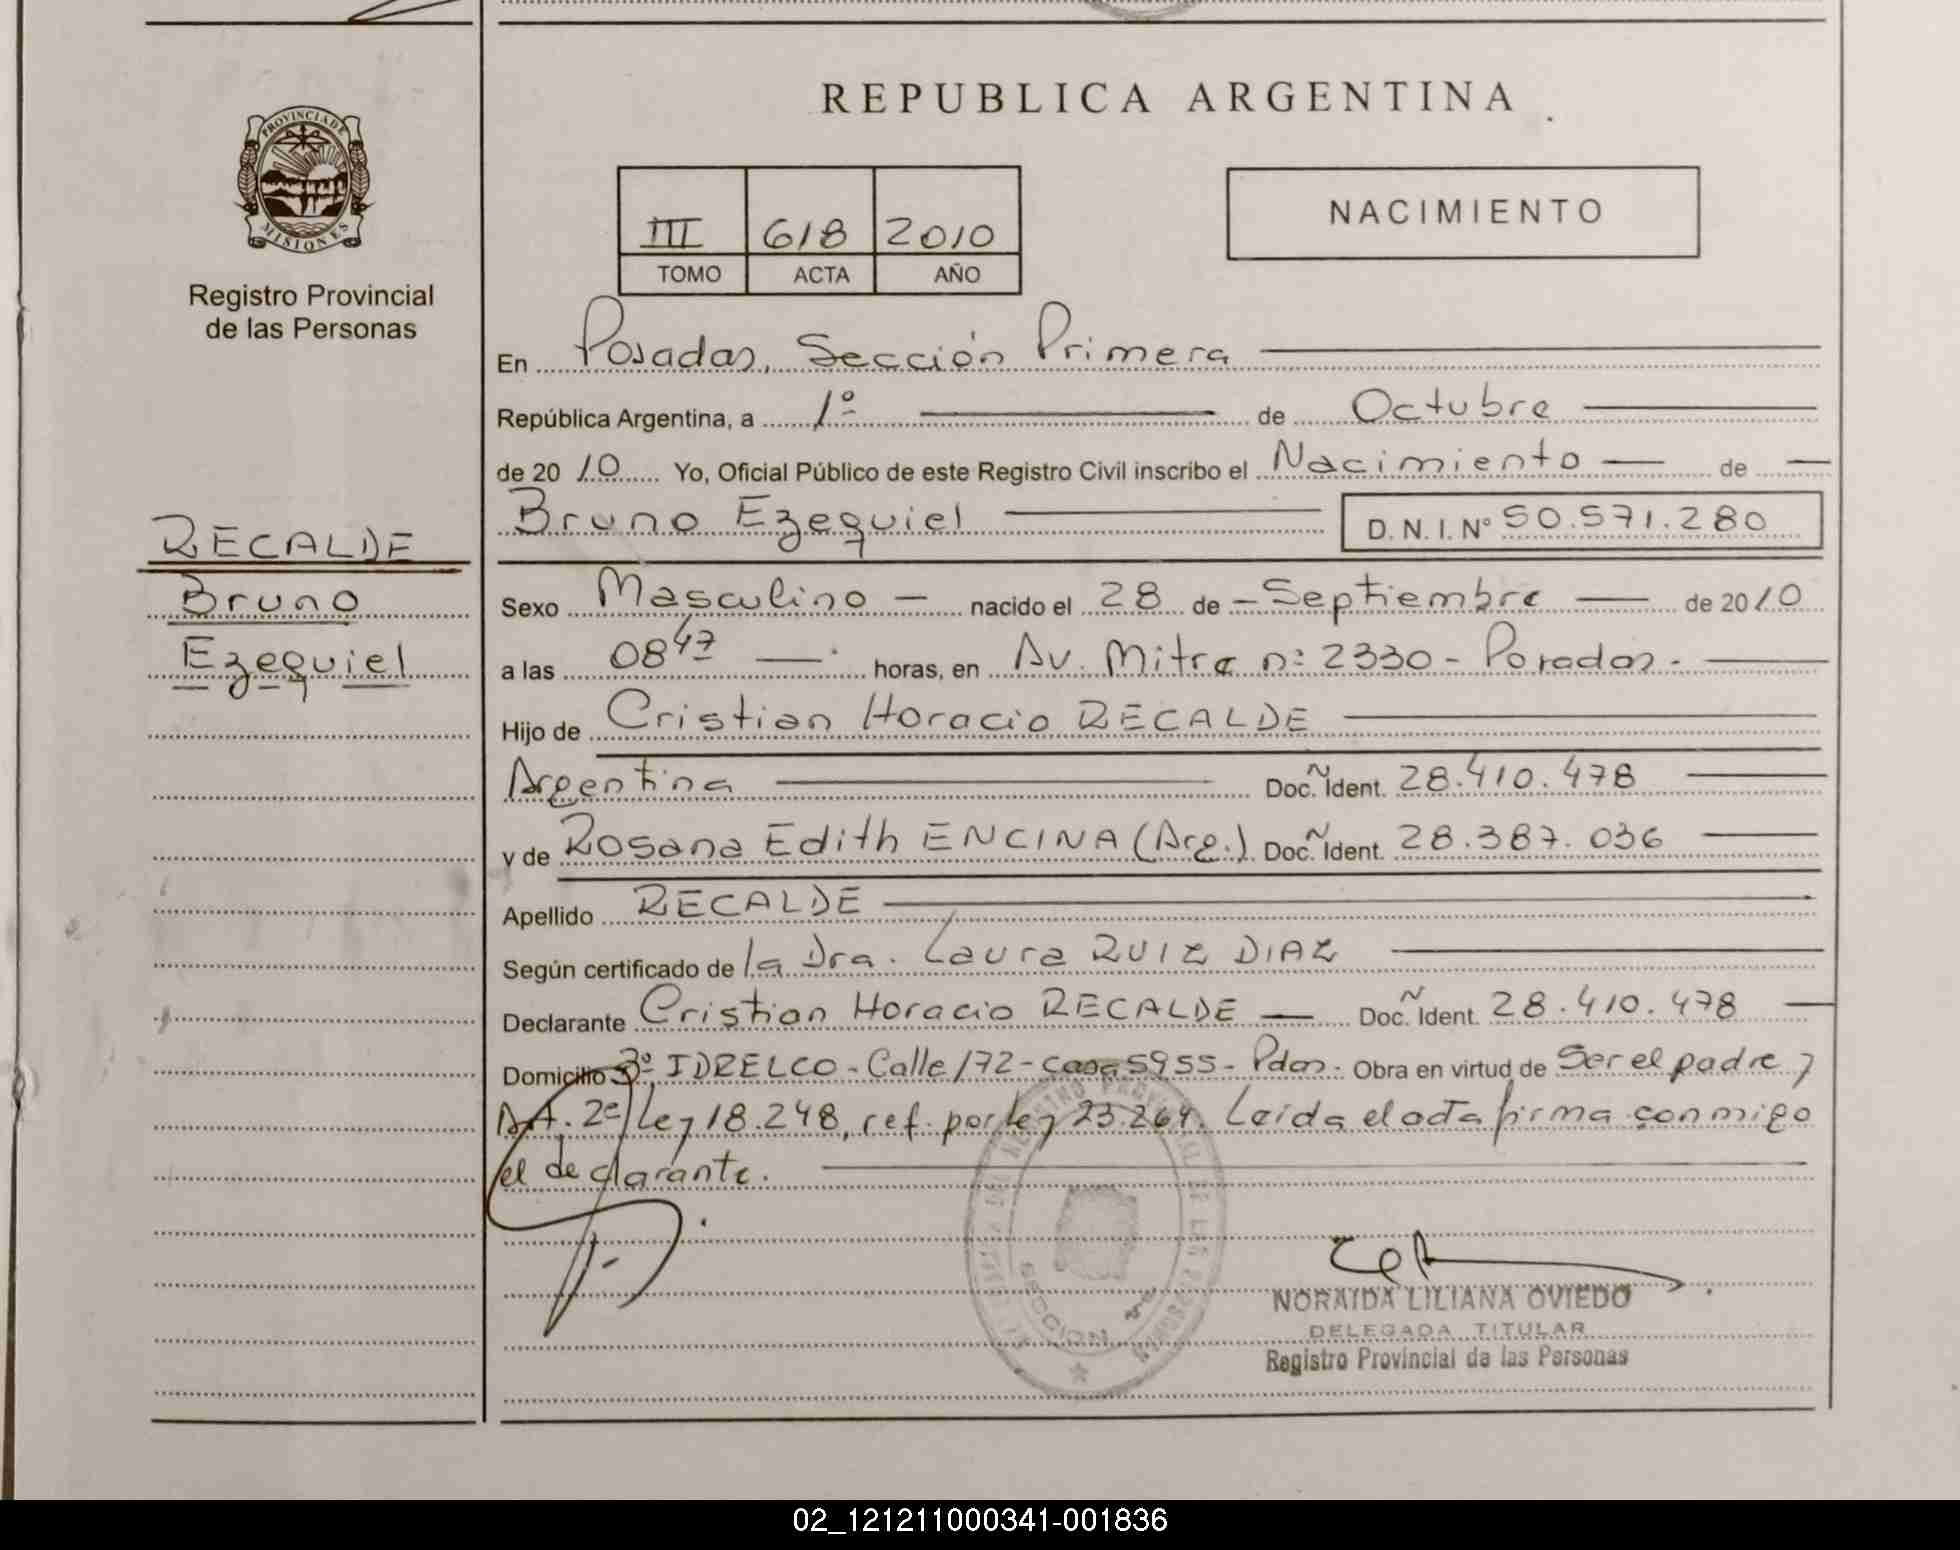 REPUBLICA ARGENTINA
PROVINCIA DE MISIONES
Registro Provincial
de las Personas
III 618 2010
TOMO ACTA AÑO
NACIMIENTO
En Posadas, Sección Primera
República Argentina, a 1º de Octubre
de 2010 Yo, Oficial Público de este Registro Civil inscribo el Nacimiento de
Bruno Ezequiel D. N. I. Nº 50.571.280
RECALDE
Bruno
Ezequiel
Sexo Masculino nacido el 28 de Septiembre de 2010
a las 08 47 horas, en Av. Mitre nº 2330 - Posadas -
Hijo de Cristian Horacio RECALDE
Argentina Doc. Ident. 28.410.478
y de Rosana Edith ENCINA (Arg.) Doc. Ident. 28.387.036
Apellido RECALDE
Según certificado de la Dra. Laura RUIZ DIAZ
Declarante Cristian Horacio RECALDE Doc. Ident. 28.410.478
Domicilio 3º IDRELCO - Calle 172 - casa 5955 - Pdas. Obra en virtud de Ser el padre y
A. 2º Ley 18.248, ref. por ley 23.264. Leída el acta firma conmigo
el declarante.
SECCION
NORAIDA LILIANA OVIEDO
DELEGADA TITULAR
Registro Provincial de las Personas
02_121211000341-001836